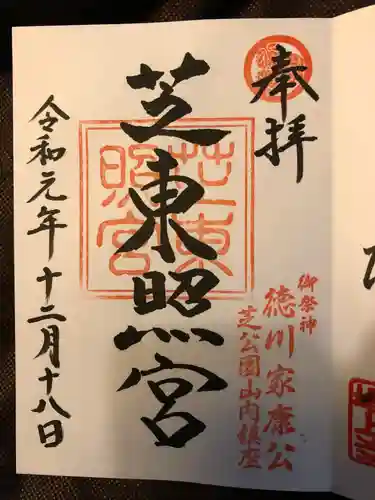 奉拝
御祭神
徳川家康公
芝公園山内鎮座
芝東照宮
芝東照宮
令和元年十二月十八日